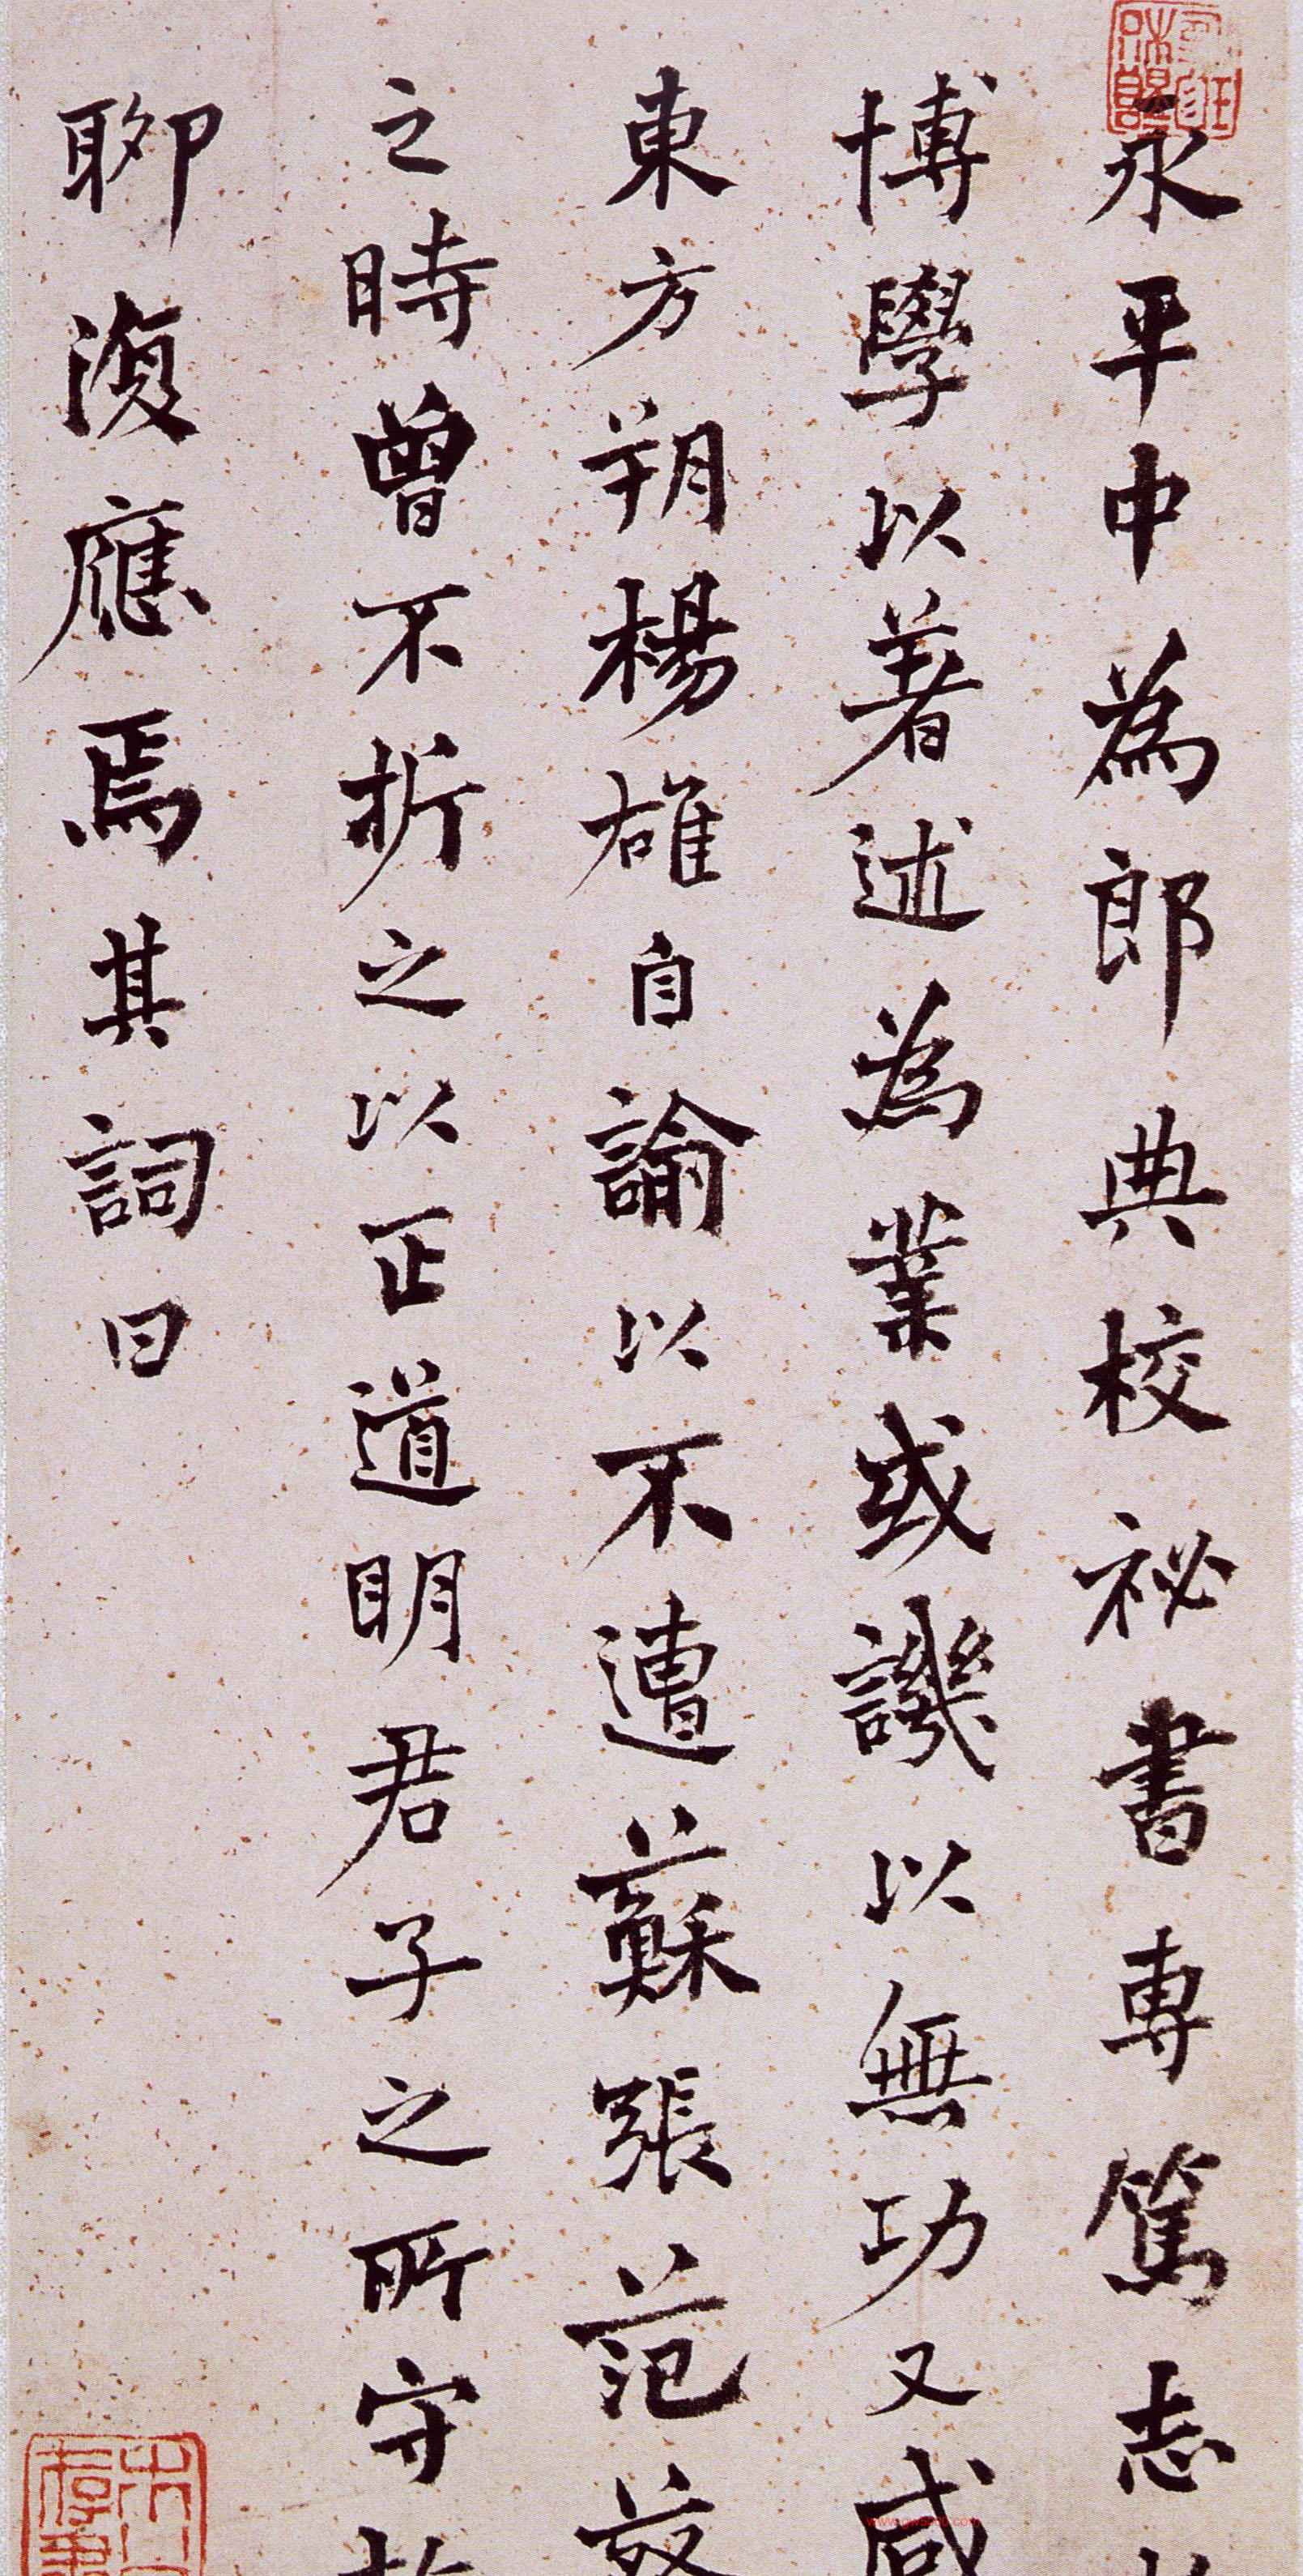 永平中為郎典校祕書專篤志於
博學以著述為業或譏以無功又感
東方朔楊雄自諭以不遭蘇張范蔡
之時曾不折之以正道明君子之所守故
聊復應焉其詞曰
www.gwsbbb.com